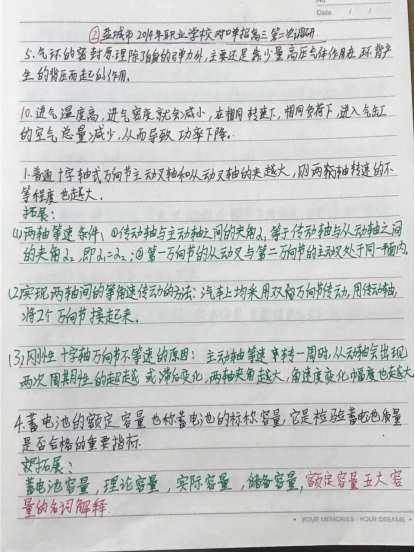 No
Date / /
②盐城市2014年职业学校对口单招高三第二次调研
5.气环的密封原理除了自身的弹力外,主要还是靠少量高压气体作用在环背产
生的背压而起的作用。
10.进气温度高,进气密度就会减小,在相同转速下,相同负荷下,进入气缸
的空气总量减少,从而导致功率下降。
1.普通十字轴式万向节主动叉轴和从动叉轴的夹越大,则两轴转速的不
等程度也越大。
拓展:
(1)两轴等速条件:①传动轴与主动轴之间的夹角α₁等于传动轴与从动轴之间
的夹角α₂,即α₁=α₂;②第一万向节的从动叉与第二万向节的主动叉处于同一平面内。
(2)实现两轴间的等角速传动的方法:汽车上均采用双万向节传动,用传动轴
将2个万向节接起来。
(3)刚性十字轴万向节不等速的原因:主动轴等速转一周时,从动轴会出现
两次周期性的超越或滞后变化,两轴夹角越大,角速度变化幅度也越大
4.蓄电池的额定容量也称蓄电池的标称容量,它是检验蓄电池质量
是否合格的重要指标.
拓展:
蓄电池容量,理论容量,实际容量,储备容量,额定容量五大容
量的名词解释
YOUR MEMORIES YOUR DREAMS